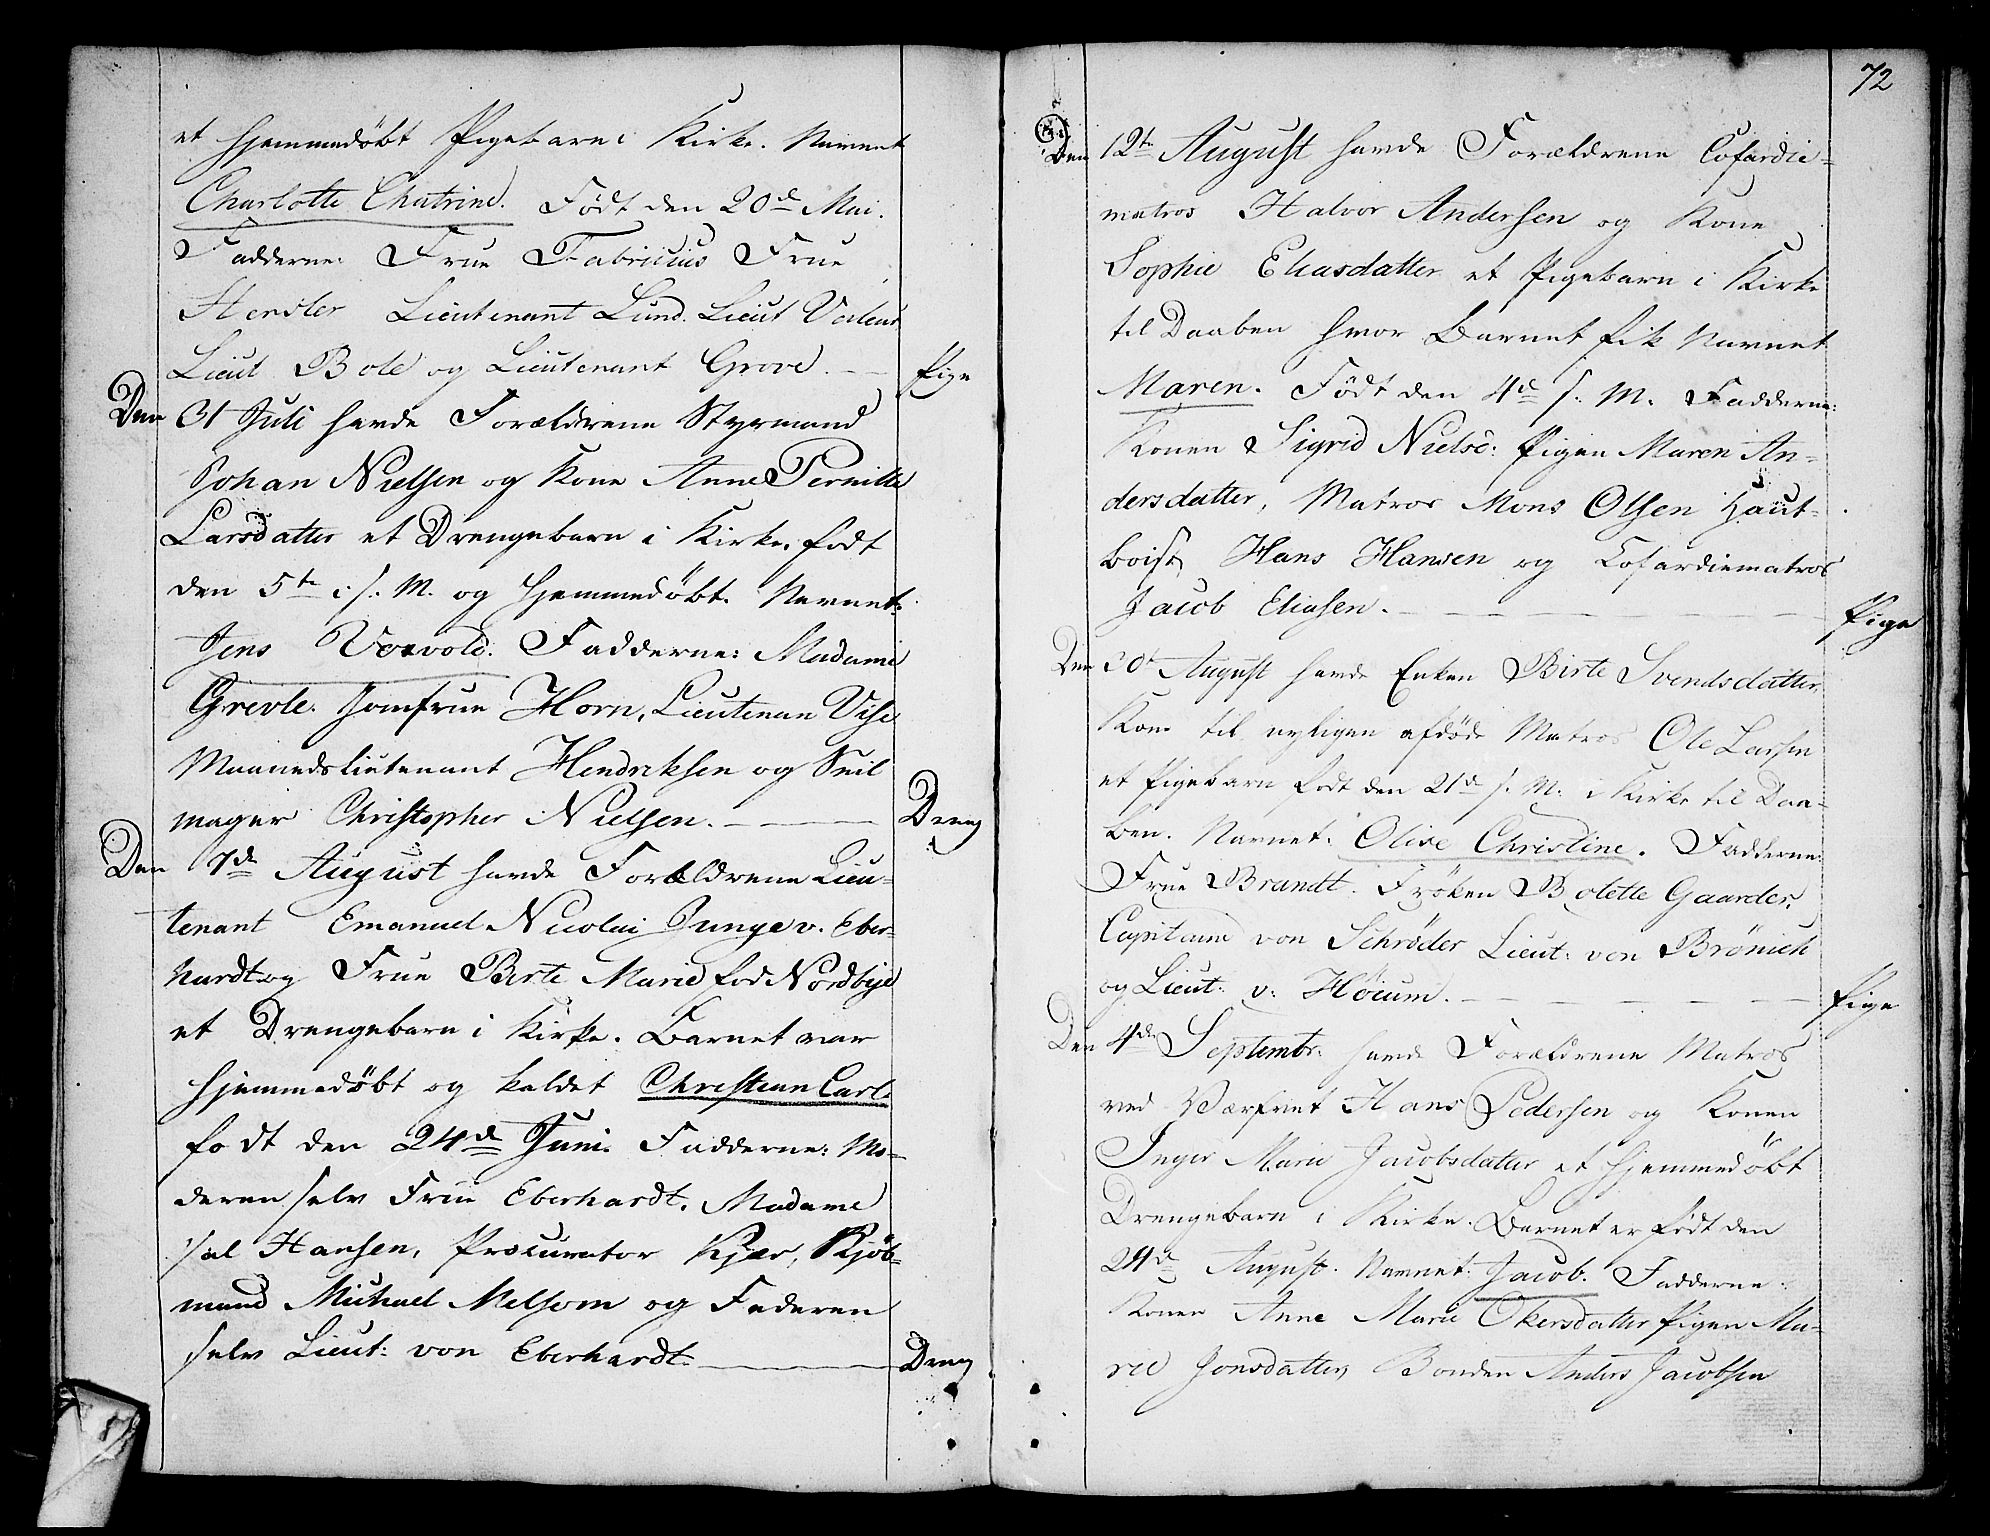 et hjemmedöbt Pigebarn i Kirke. Navnet
Charlotte Chatrine. Födt den 20de Mai.
Fadderne: Frue Fabricius Frue
Lieutenant Lund. Lieut
Lieut Bole og Lieutenant Grove. Pige
Den 31 Juli havde Forældrene Styrmand
Johan Nielsen og Kone Anne Pernille
Larsdatter et Drengebarn i Kirke, født
den 5te i s. M. og hjemmedöbt. Navnet:
Jens Fadderne: Madame
Grevle. Jomfrue Horn, Lieutenan Vise
Maanedslieutenant Hendriksen og Seil
mager Christopher Nielsen. Dreng
Den 7de August havde Forældrene Lieu-
tenant Emanuel Nicolai Junge v. Eber-
hardt og Frue Birte Marie fød Nordbye
et Drengebarn i Kirke. Barnet var
hjemmedöbt og kaldet Christian Carl.
født den 24de Juni. Fadderne: Mo-
deren selv Frue Eberhardt. Madame
sal Hansen, Procurator Kjær, Kjöb-
mand Michael Melsom og Faderen
selv Lieut: von Eberhardt. Dreng
72
Den 12te August havde Forældrene Cofardie-
matros Halvor Andersen og Kone
Sophie Eliasdatter et Pigebarn i Kirke
til Daaben hvor Barnet fik Navnet
Maren. Födt den 4de s. M. Fadderne:
Konen Sigrid Nielse: Pigen Maren An-
dersdatter, Matros Mons Olsen Haut-
boist Hans Hansen og Cofardiematros
Jacob Eliasen. Pige
Den 20de August havde Enken Birte Svendsdatter
Kone til nyligen afdöde Matros Ole Larsen
et Pigebarn født den 21de s. M. i Kirke til Daa-
ben. Navnet: Olise Christine. Fadderne:
Frue Brandt. Fröken Bolette Gaarder,
Capitaine von Schrøder Lieut: von Brönich
og Lieut: v: Höicum. Pige
Den 4de Septembr: havde Forældrene Matros
ved Værfvet Hans Pedersen og Konen
Inger Marie Jacobsdatter et hjemmedöbt
Drengebarn i Kirke. Barnet er födt den
24de August. Navnet: Jacob. Fadderne:
Konen Anne Marie Okersdatter Pigen Ma-
rie Jonsdatter, Bonden Anders Jacobsen